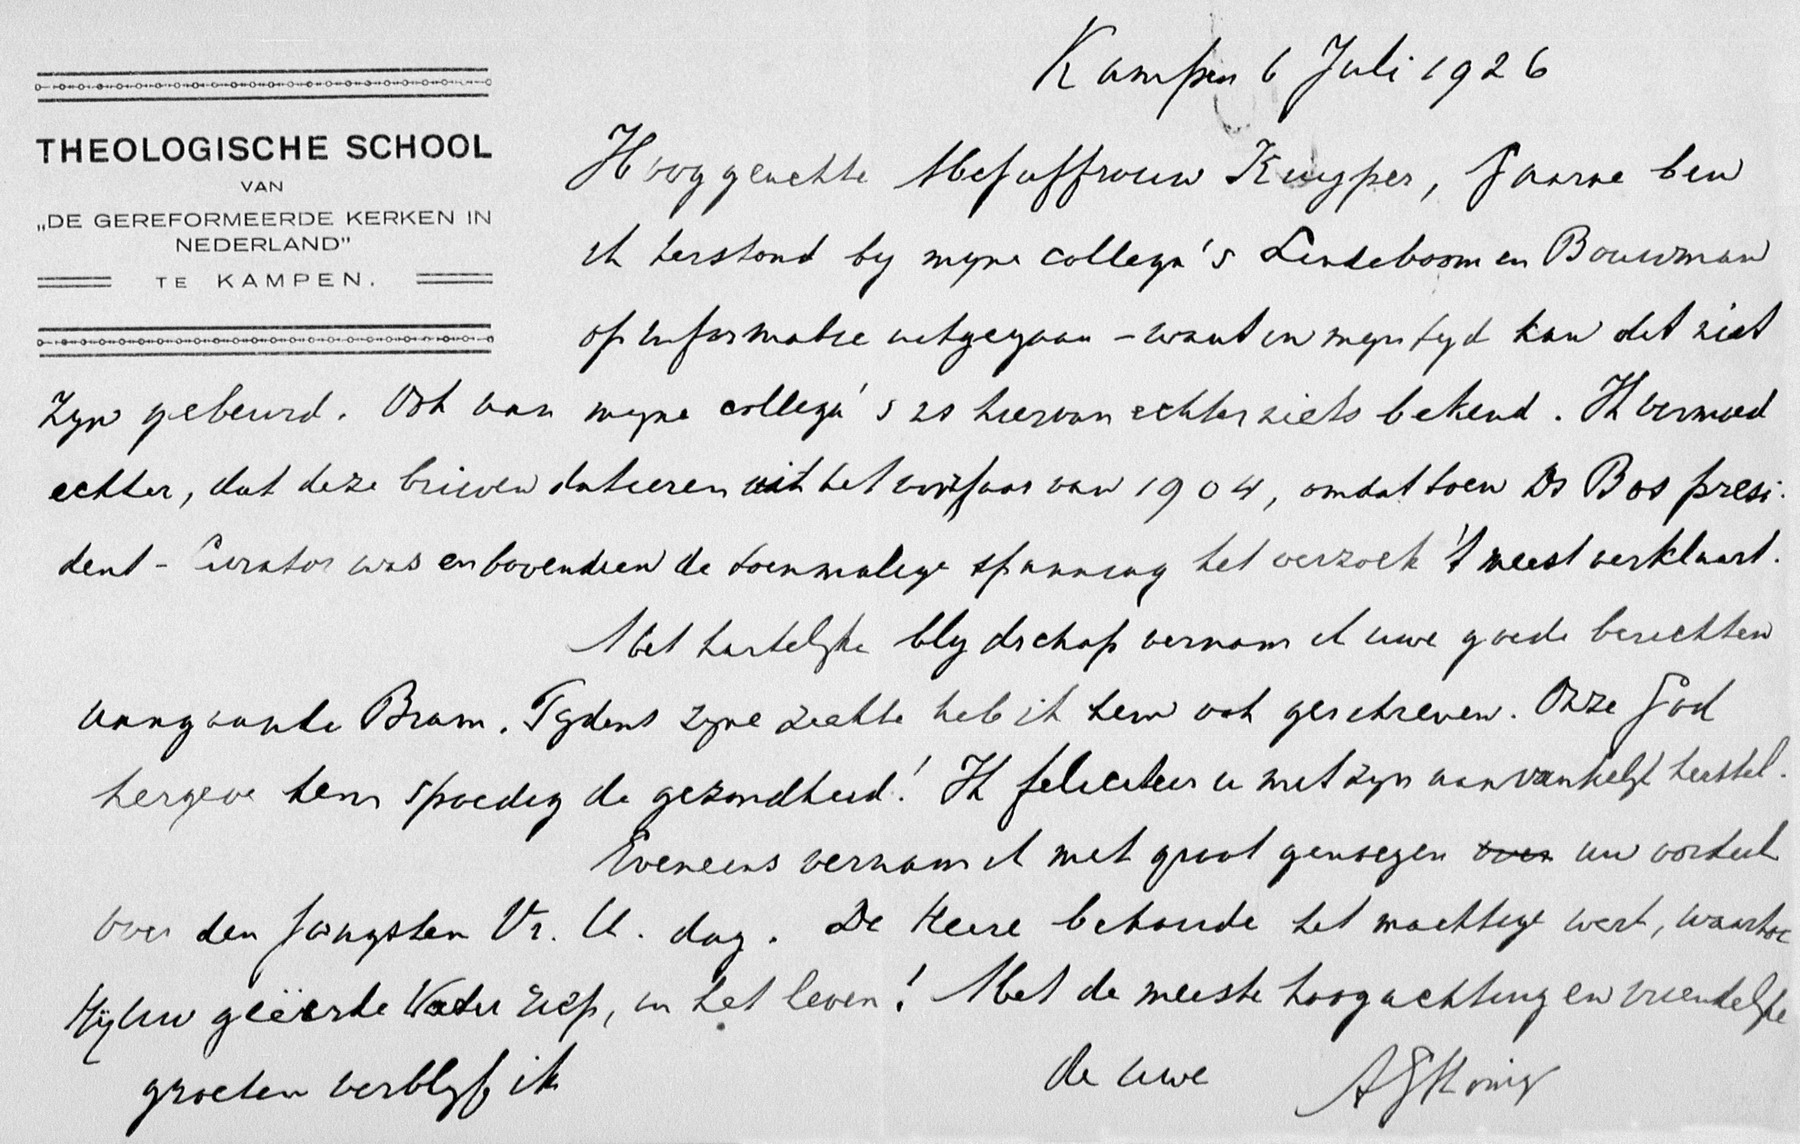 Kampen 6 Juli 1926
THEOLOGISCHE SCHOOL
VAN
„DE GEREFORMEERDE KERKEN IN
NEDERLAND”
TE KAMPEN.
Hooggeachte Mejuffrouw Kuyper, Gaarne ben
ik terstond by myne collega's Lindeboom en Bouwman
op informatie uitgegaan – want in myn tyd kan dit niet
zyn gebeurd. Ook van myne collega's is hiervan echter niets bekend. Ik vermoed
echter, dat deze brieven dateeren uit het voorjaar van 1904, omdat toen Ds Bos presi-
dent-Curator was en bovendien de toenmalige spanning het verzoek 't meest verklaart.
Met hartelyke blydschap vernam ik uwe goede berichten
aangaande Bram. Tydens zyne ziekte heb ik hem ook geschreven. Onze God
hergeve hem spoedig de gezondheid! Ik feliciteer u met zyn aanvankelyk herstel.
Eveneens vernam ik met groot genoegen over uw oordeel
over den jongsten Vr. U. dag. De Heere behoude het machtige werk, waartoe
Hy Uw geëerde Vader riep, in het leven! Met de meeste hoogachting en vriendelyke
groeten verblyf ik
de uwe
AGHonig